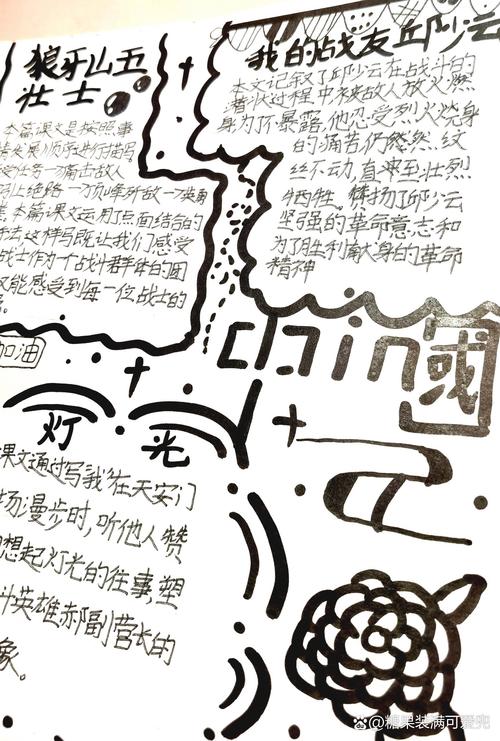 狼牙山五
壮士
本篇课文是按照事
情发展顺序进行描写
务 痛击敌人
上绝路
本篇课文运用了点面结合的
法,这样写既让我们感受
战士作为一个战斗群体的团
又能感受到每一位战士的
加油
我的战友邱少云
本文记叙了邱少云在战斗的
潜伏过程中被敌人放火燃
身为了不暴露,他忍受烈火烧身
的痛苦仍然然纹
丝不动,直至壮烈
牺牲。 扬了邱少云
坚强的革命意志和
为了胜利献身的革命
精神
china
國
灯光
课文通过写"我"在天安门
场漫步时,听他人赞
想起灯光的往事,塑
斗英雄郝副营长的
象。
@糖果装满可爱兜